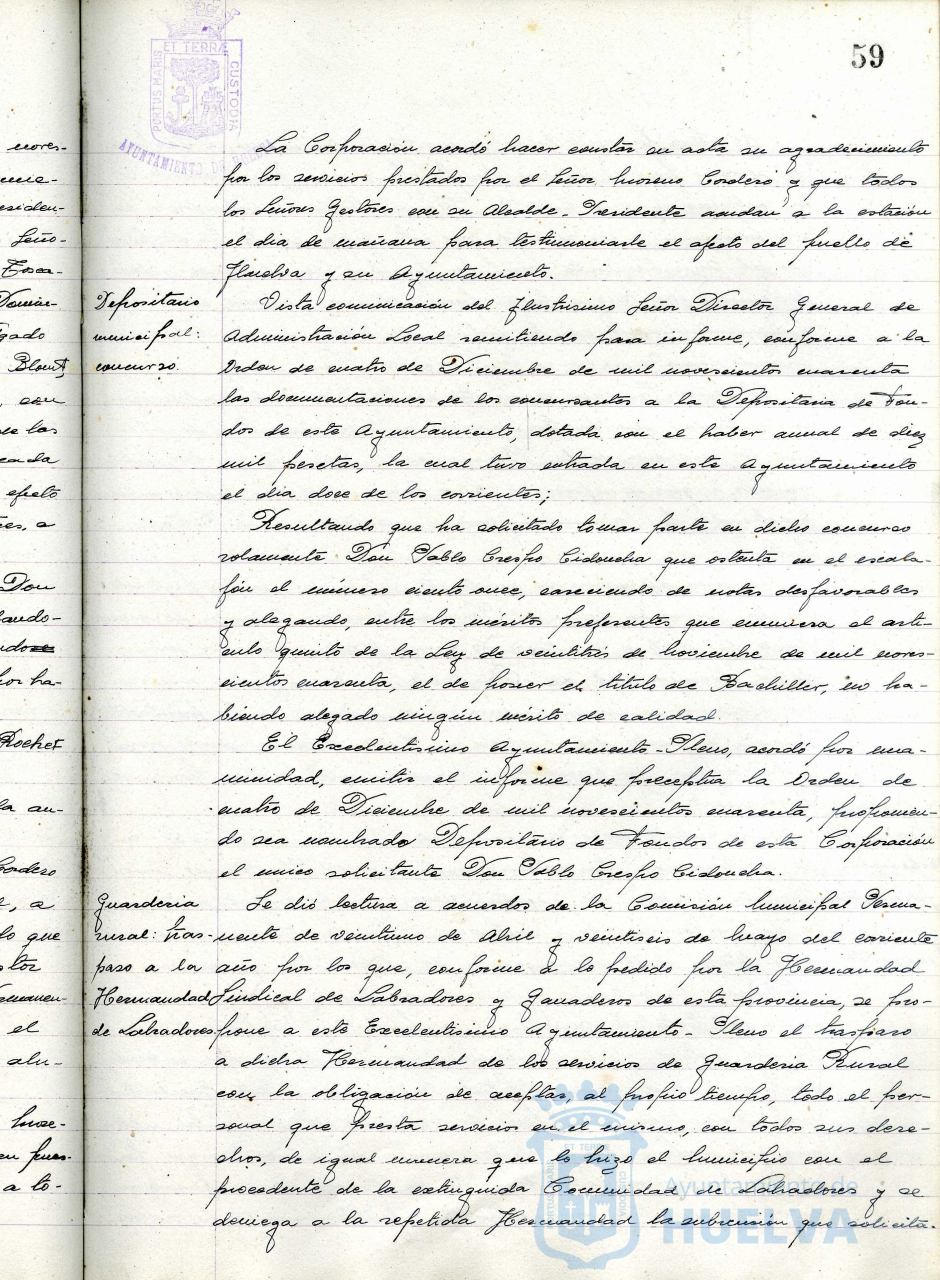 59
PORTUS MARIS
ET TERRÆ
CUSTODIA
AYUNTAMIENTO DE
La Corporación acordó hacer constar en acta su agradecimiento
por los servicios prestados por el Señor Moreno Cordero y que todos
los Señores Gestores con su Alcalde-Presidente acudan a la estación
el dia de mañana para testimoniarle el afecto del pueblo de
Huelva y su Ayuntamiento.
Depositario
municipal:
concurso.
Vista comunicación del Ilustrisimo Señor Director General de
Administración Local remitiendo para informe, conforme a la
Orden de cuatro de Diciembre de mil novescientos cuarenta
las documentaciones de los concursantes a la Depositaria de Fon-
dos de este Ayuntamiento, dotada con el haber anual de diez
mil pesetas, la cual tuvo entrada en este Ayuntamiento
el dia doce de los corrientes;
Resultando que ha solicitado tomar parte en dicho concurso
solamente Don Pablo Crespo Cidoncha que ostenta en el escala-
fón el número ciento once, careciendo de notas desfavorables
y alegando, entre los méritos preferentes que enumera el arti-
culo quinto de la Ley de veintitrés de Noviembre de mil noves-
cientos cuarenta, el de poseer el titulo de Bachiller, no ha-
biendo alegado ningún mérito de calidad.
El Excelentisimo Ayuntamiento-Pleno, acordó por una-
nimidad, emitir el informe que preceptúa la Orden de
cuatro de Diciembre de mil novescientos cuarenta, proponien-
do sea nombrado Depositario de Fondos de esta Corporación
el unico solicitante Don Pablo Crespo Cidoncha.
Guarderia
rural: tras-
paso a la
Hermandad
de Labradores
Se dió lectura a acuerdos de la Comisión Municipal Perma-
nente de veintiuno de Abril y veintiseis de Mayo del corriente
año por los que, conforme a lo pedido por la Hermandad
Sindical de Labradores y Ganaderos de esta provincia, se pro-
pone a este Excelentisimo Ayuntamiento-Pleno el traspaso
a dicha Hermandad de los servicios de Guarderia Rural
con la obligación de aceptar, al propio tiempo, todo el per-
sonal que presta servicios en el mismo, con todos sus dere-
chos, de igual manera que lo hizo el Municipio con el
procedente de la extinguida Comunidad de Labradores y se
deniega a la repetida Hermandad la subvención que solicita.
Ayuntamiento de
HUELVA